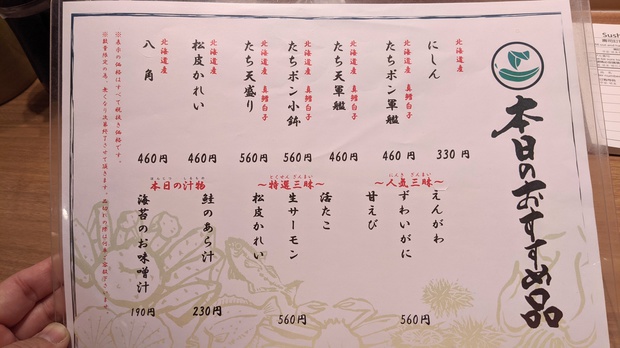 本日のおすすめ品
北海道産
にしん
330円
北海道産 真鱈白子
たちポン軍艦
460円
北海道産 真鱈白子
たち天軍艦
460円
北海道産 真鱈白子
たちポン小鉢
560円
北海道産 真鱈白子
たち天盛り
560円
北海道産
松皮かれい
460円
北海道産
八角
460円
※表示の価格はすべて税抜き価格です。
にんき ざんまい
～人気三昧～
えんがわ
ずわいがに
甘えび
560円
とくせん ざんまい
～特選三昧～
活たこ
生サーモン
松皮かれい
560円
ほんじつ しるもの
本日の汁物
鮭のあら汁
230円
海苔のお味噌汁
190円
Sush